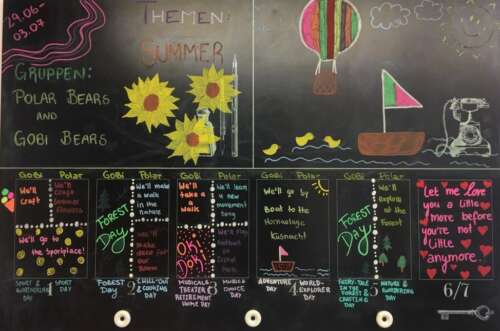 29.06-
03.07
THEMEN:
SUMMER
GRUPPEN:
POLAR BEARS
AND
GOBI BEARS
GOBI
POLAR
We'll
craft
We'll
craft
Summer
flowers
We'll go to
the Sportplace!
SPORT &
WONDERING
DAY
1
SPORT
DAY
GOBI
POLAR
FOREST
DAY
We'll make
a walk
in the
nature
We'll
make
for our
room
FOREST
DAY
2
CHILL-OUT
& COOKING
DAY
GOBI
POLAR
We'll
take a
a walk
We'll learn
a new
movement
song
OKI
DOKI
We'll play
football
MUSICALS
THEATER
RETIREMENT
HOME DAY
3
MUSIC &
DANCE
DAY
GOBI
POLAR
We'll go by
Boat to the
Küsnacht
ADVENTURE
DAY
4
WORLD-
EXPLORER
DAY
GOBI
POLAR
FOREST
DAY
We'll
explore
at the
Forest
FAIRY-TALE
IN THE
FOREST &
CRAFTING
DAY
5
NATURE &
WONDERING
DAY
Let me love
you a little
more before
you're not
little
anymore.
6/7